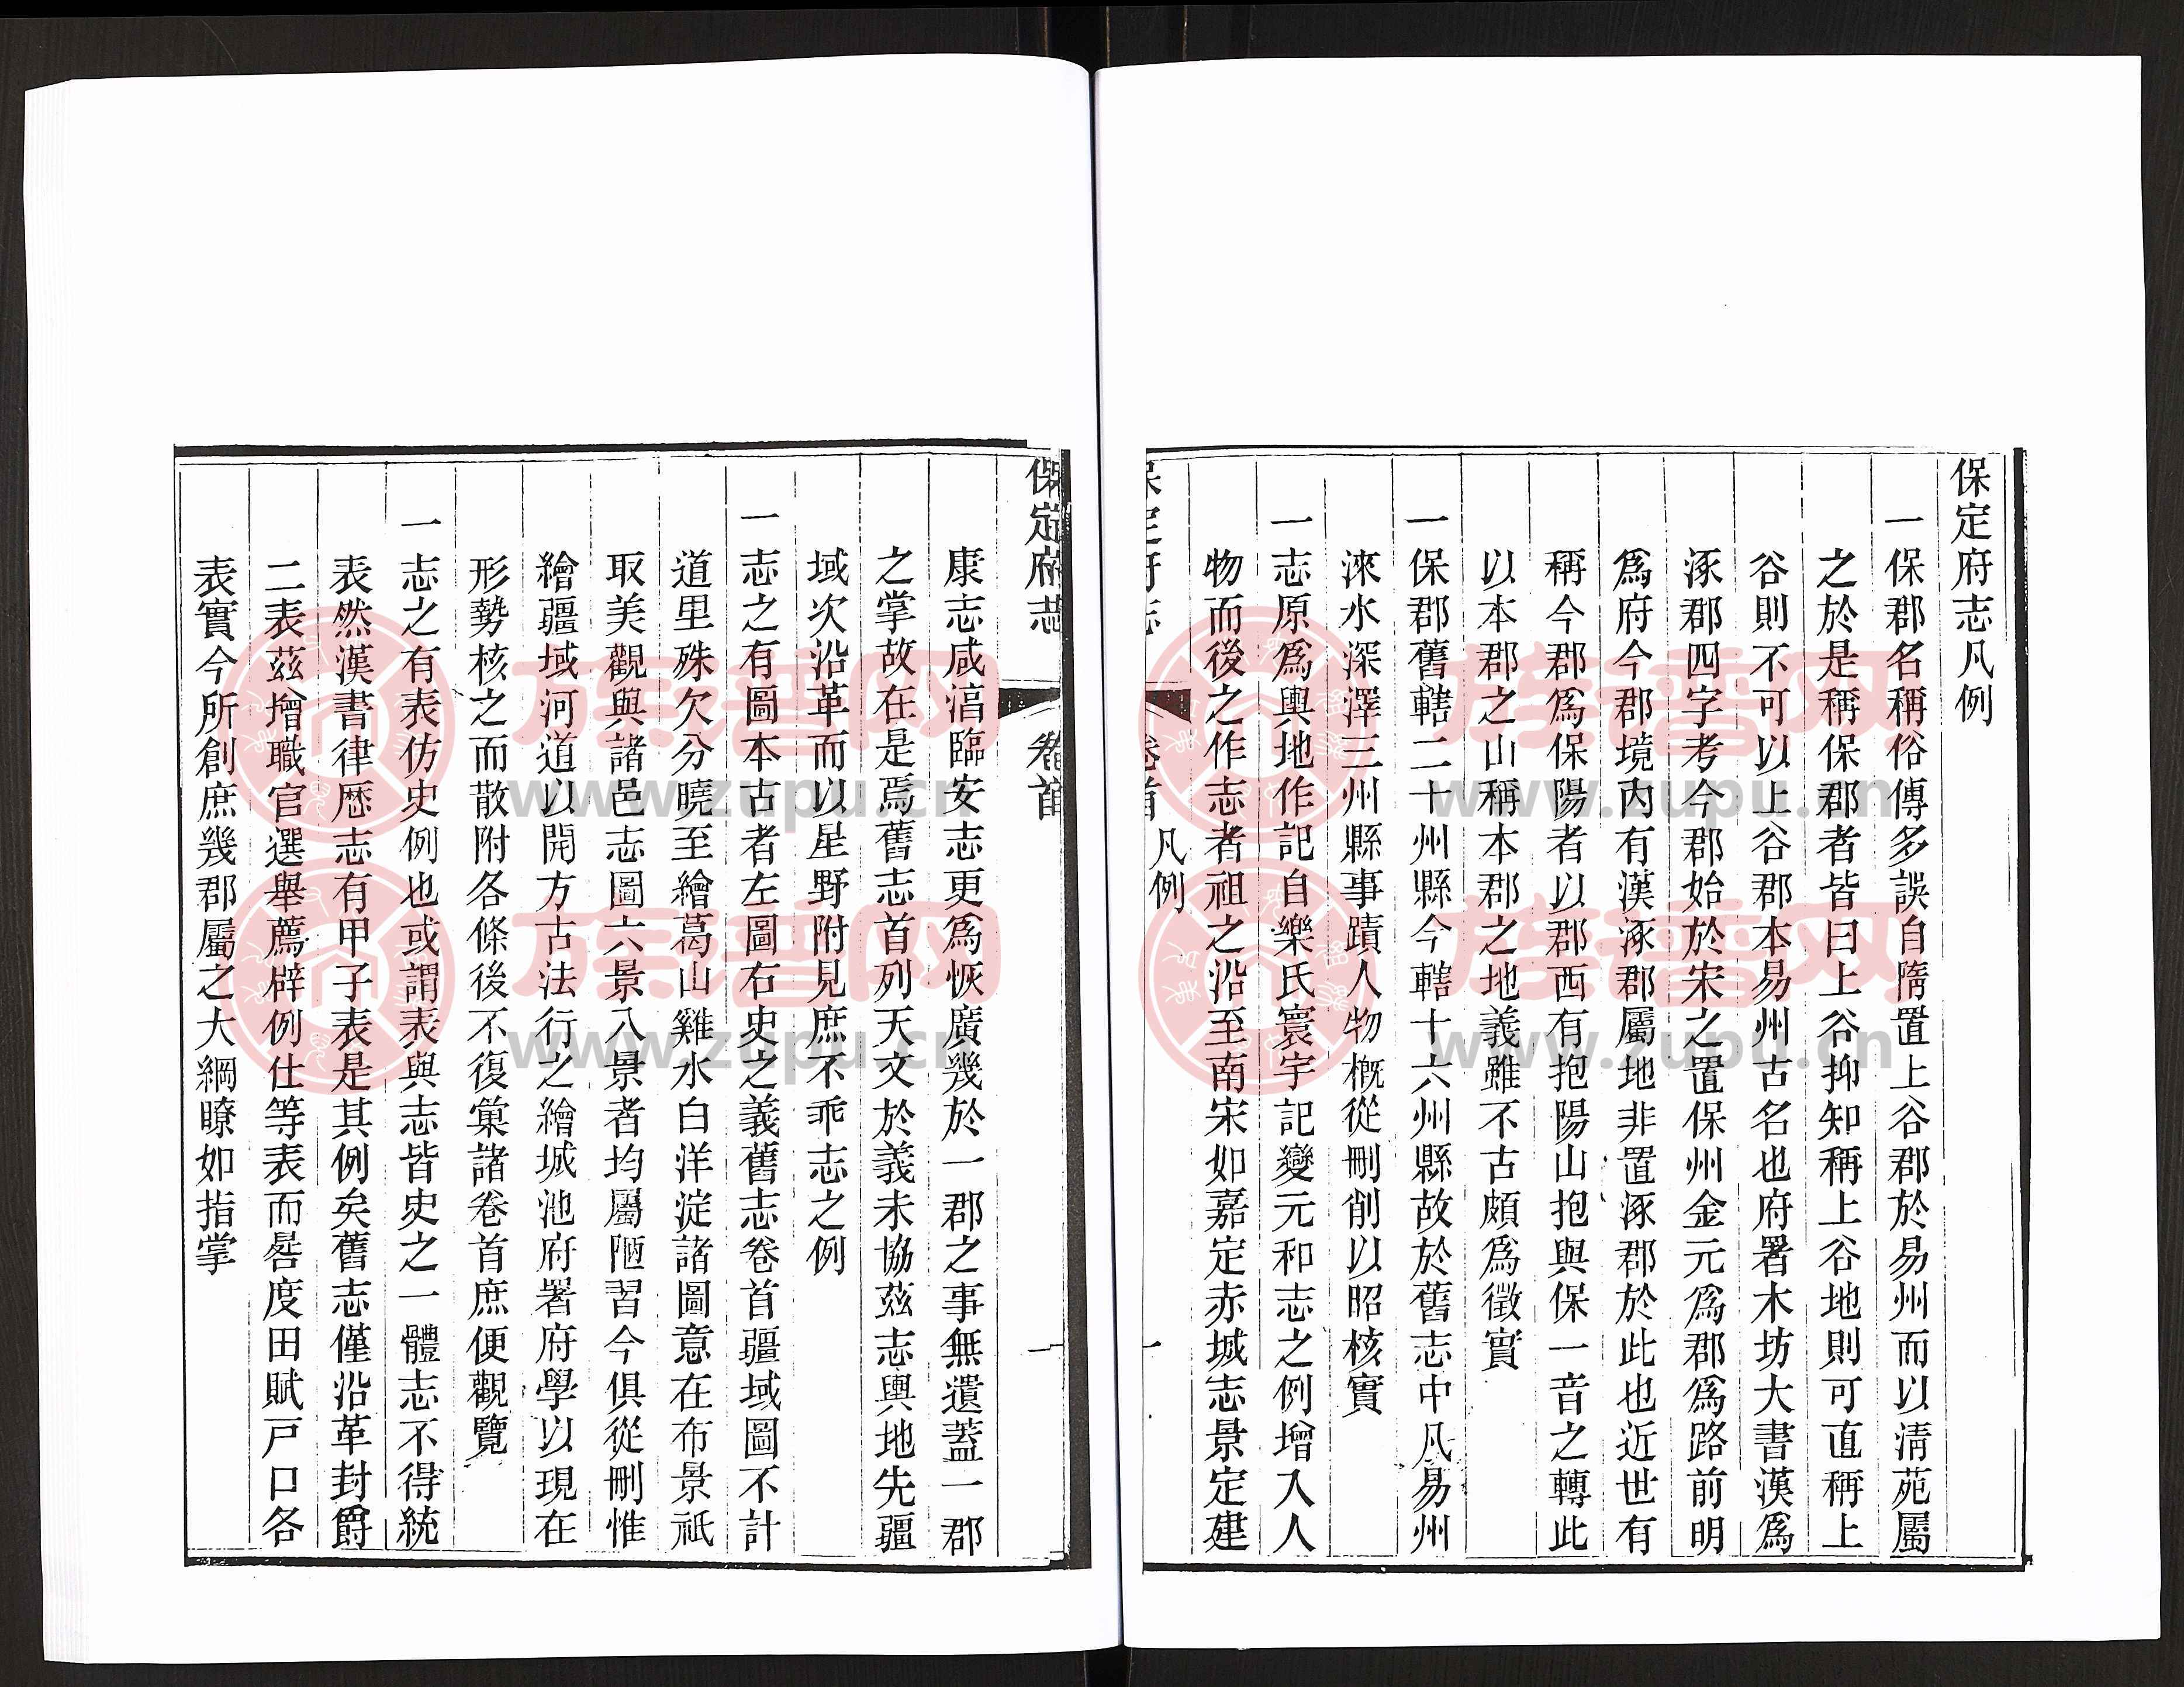 保定府志凡例
一保郡名稱俗傳多誤自隋置上谷郡於易州而以淸苑屬
之於是稱保郡者皆曰上谷抑知稱上谷地則可直稱上
谷則不可以上谷郡本易州古名也府署木坊大書漢爲
涿郡四字考今郡始於宋之置保州金元爲郡爲路前明
爲府今郡境內有漢涿郡屬地非置涿郡於此也近世有
稱今郡爲保陽者以郡西有抱陽山抱與保一音之轉此
以本郡之山稱本郡之地義雖不古頗爲徵實
一保郡舊轄二十州縣今轄十六州縣故於舊志中凡易州
淶水深澤三州縣事蹟人物槪從刪削以昭核實
一志原爲輿地作記自樂氏寰宇記變元和志之例增入人
物而後之作志者祖之沿至南宋如嘉定赤城志景定建
保定府志 卷首 凡例 一
保定府志 卷首 一
康志咸淳臨安志更爲恢廣幾於一郡之事無遺蓋一郡
之掌故在是焉舊志首列天文於義未協茲志輿地先疆
域次沿革而以星野附見庶不乖志之例
一志之有圖本古者左圖右史之義舊志卷首疆域圖不計
道里殊欠分曉至繪葛山雞水白洋淀諸圖意在布景祇
取美觀與諸邑志圖六景八景者均屬陋習今俱從刪惟
繪疆域河道以開方古法行之繪城池府署府學以現在
形勢核之而散附各條後不復彙諸卷首庶便觀覽
一志之有表仿史例也或謂表與志皆史之一體志不得統
表然漢書律歷志有甲子表是其例矣舊志僅沿革封爵
二表茲增職官選舉薦辟例仕等表而晷度田賦戸口各
表實今所創庶幾郡屬之大綱瞭如指掌
族譜网
www.zupu.cn
族譜网
www.zupu.cn
族譜网
www.zupu.cn
族譜网
www.zupu.cn